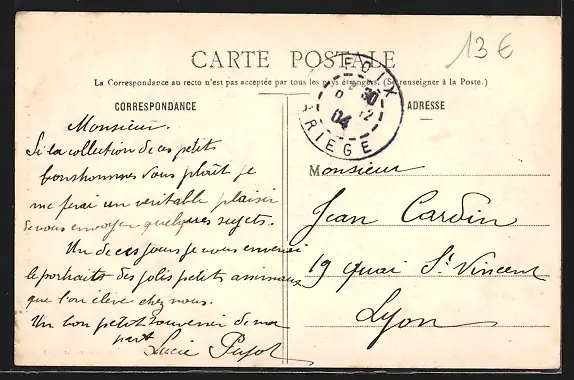 CARTE POSTALE
13 €
La Correspondance au recto n'est pas acceptée par tous les pays étrangers. (Se renseigner à la Poste.)
FOIX
ARIEGE
04
CORRESPONDANCE
ADRESSE
Monsieur.
Si la collection de ces petits
bonshommes vous plaît je
me ferai un veritable plaisir
de vous envoyer quelques sujets.
Un de ces jours je vous enverrai
le portrait des jolis petits animaux
que l'on élève chez nous.
Un bon petit souvenir de ma
part
Lucie Pujol
Monsieur
Jean Cardin
19 quai St Vincent
Lyon